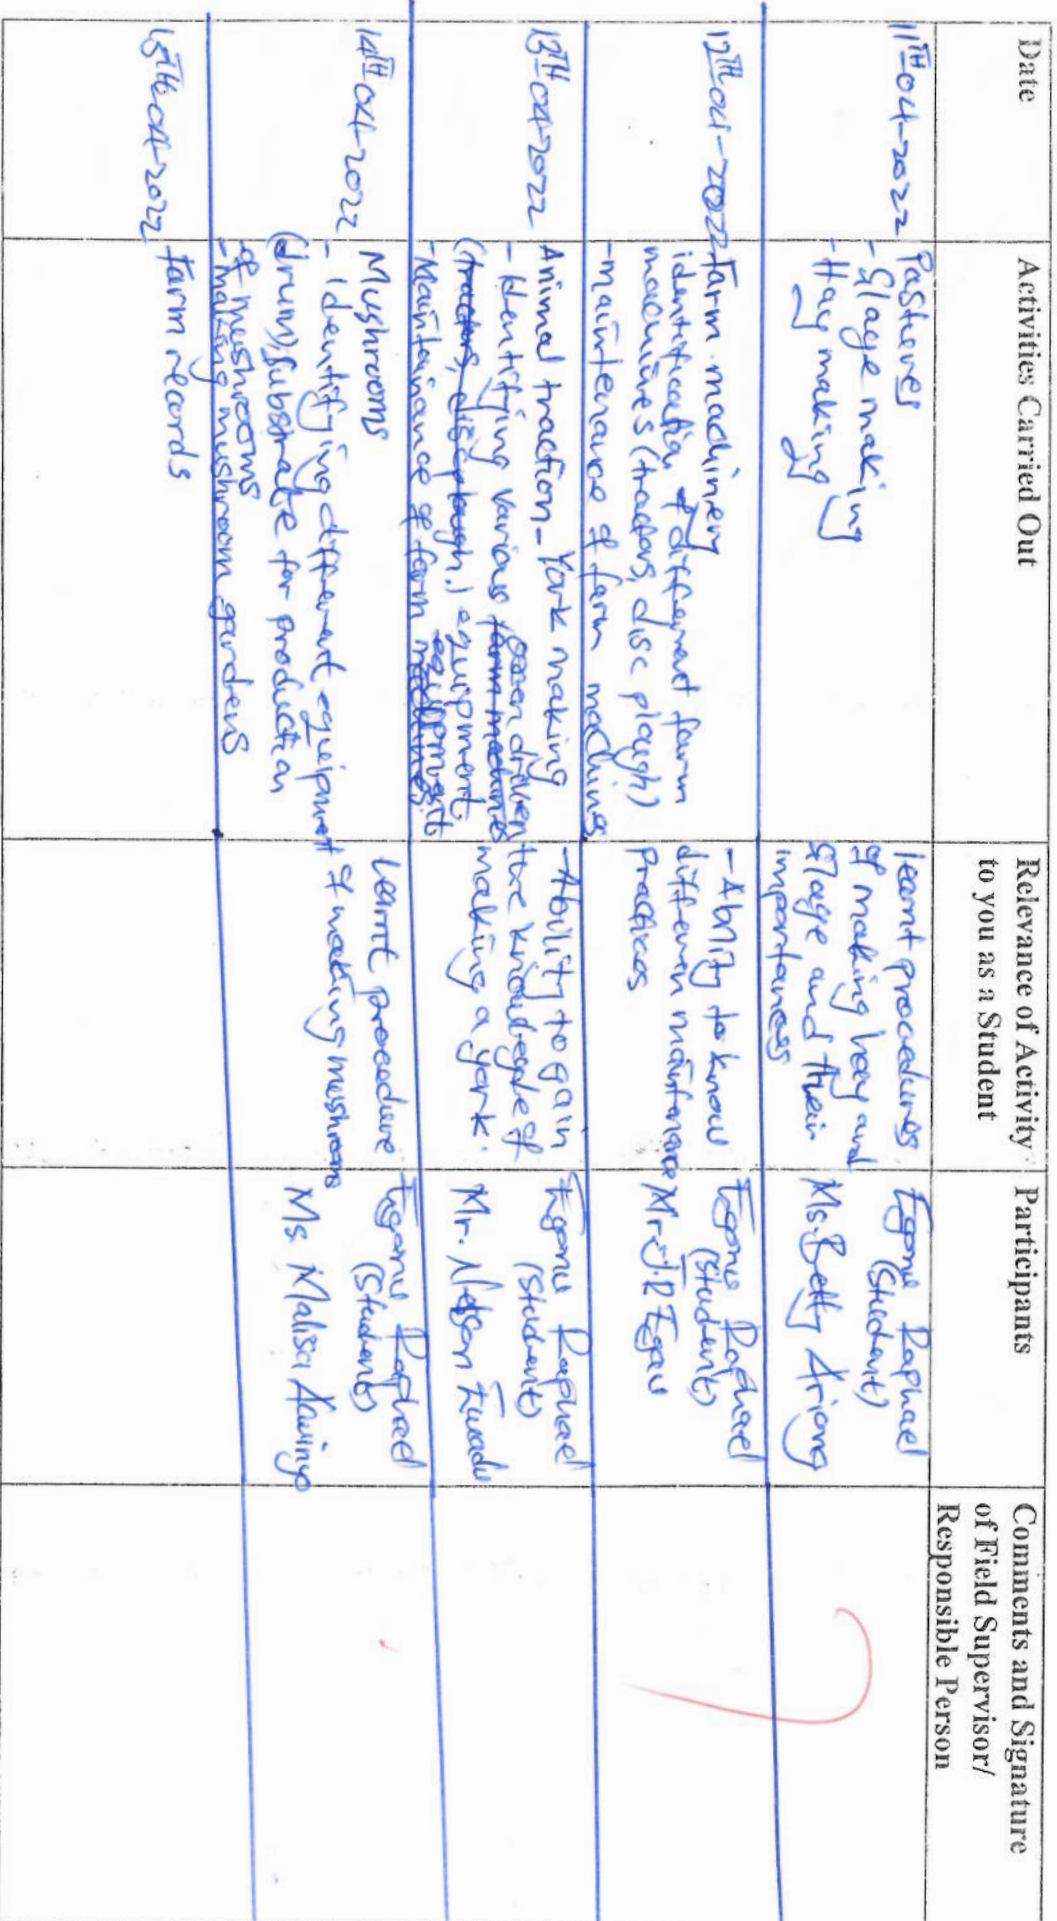 Date
Activities Carried Out
Relevance of Activity
to you as a Student
Participants
Comments and Signature
of Field Supervisor/
Responsible Person
11TH-04-2022
Pastures
- Silage making
- Hay making
learnt procedures
of making hay and
silage and their
importances
Egonu Raphael
(Student)
Ms. Betty Ariong
12TH-04-2022
Farm machinery
identification of different farm
machines (tractors, disc plough)
- maintenance of farm machines
- Ability to know
different maintenance
practices
Egonu Raphael
(Student)
Mr. J.R Egau
13TH-04-2022
Animal traction - York making
- Identifying various farm machines oxen driven
(tractors, disc plough.) equipment
- Maintainance of farm machines equipments
- Ability to gain
the knowledge of
making a york.
Egonu Raphael
(Student)
Mr. Nelson Ewadu
14TH-04-2022
Mushrooms
- Identifying different equipment
(drum), Substrate for production
of mushrooms
- making mushroom gardens
Learnt procedure
of making mushrooms
Egonu Raphael
(Student)
Ms. Malisa
15TH-04-2022
Farm records